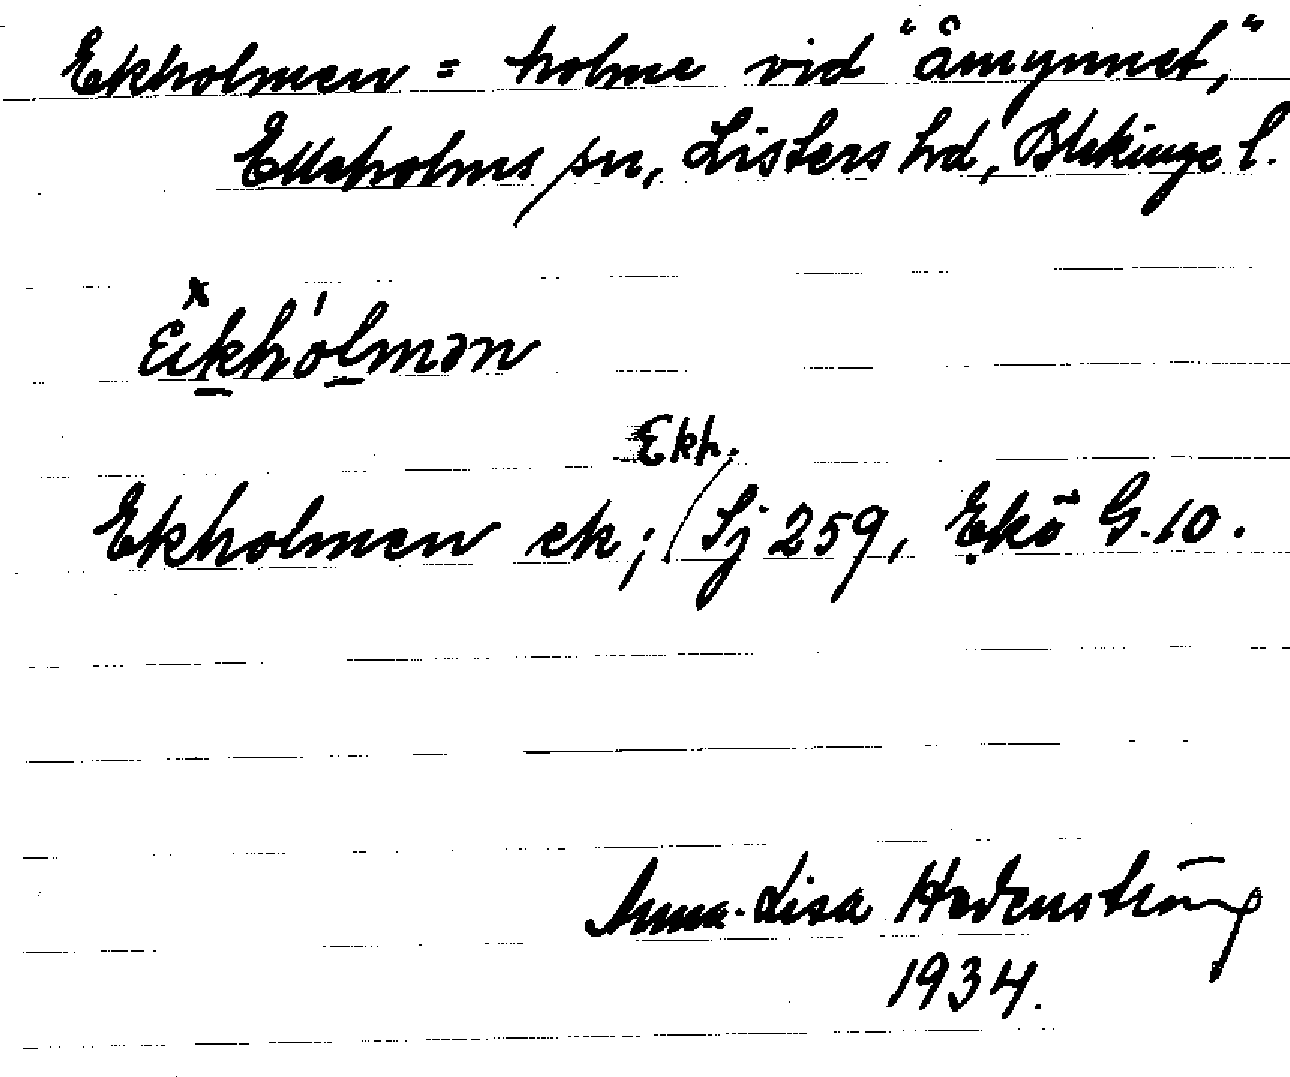 Ekholmen = holme vid "åmynnet,"
Elleholms sn, Listers hd, Blekinge l.
eikholmən
Ekh.
Ekholmen ek; Sj 259, Ekö G. 10.
Anna-Lisa
1934.